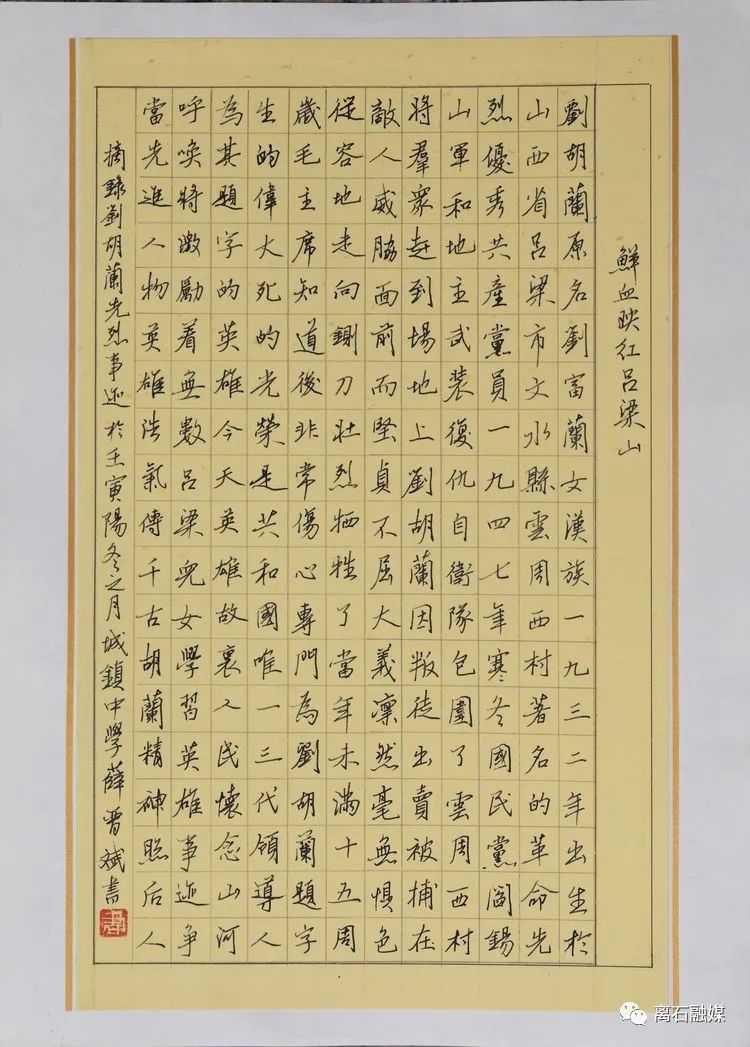 鮮血映红吕梁山
劉胡蘭原名劉富蘭女漢族一九三二年出生於
山西省吕梁市文水縣雲周西村著名的革命先
烈優秀共產黨員一九四七年寒冬國民黨閻錫
山軍和地主武装復仇自衛隊包圍了雲周西村
將羣衆赶到場地上劉胡蘭因叛徒出賣被捕在
敵人威脇面前而堅貞不屈大義凛然毫無惧色
從容地走向鍘刀壮烈牺牲了當年未満十五周
歲毛主席知道後非常傷心專門為劉胡蘭題字
生的偉大死的光榮是共和國唯一三代领導人
為其題字的英雄今天英雄故裏人民懷念山河
呼唤將激勵着無數吕梁兒女學習英雄事迹争
當先進人物英雄浩氣傳千古胡蘭精神照后人
摘錄劉胡蘭先烈事迹於壬寅陽冬之月城鎮中學薛晋斌書
离石融媒